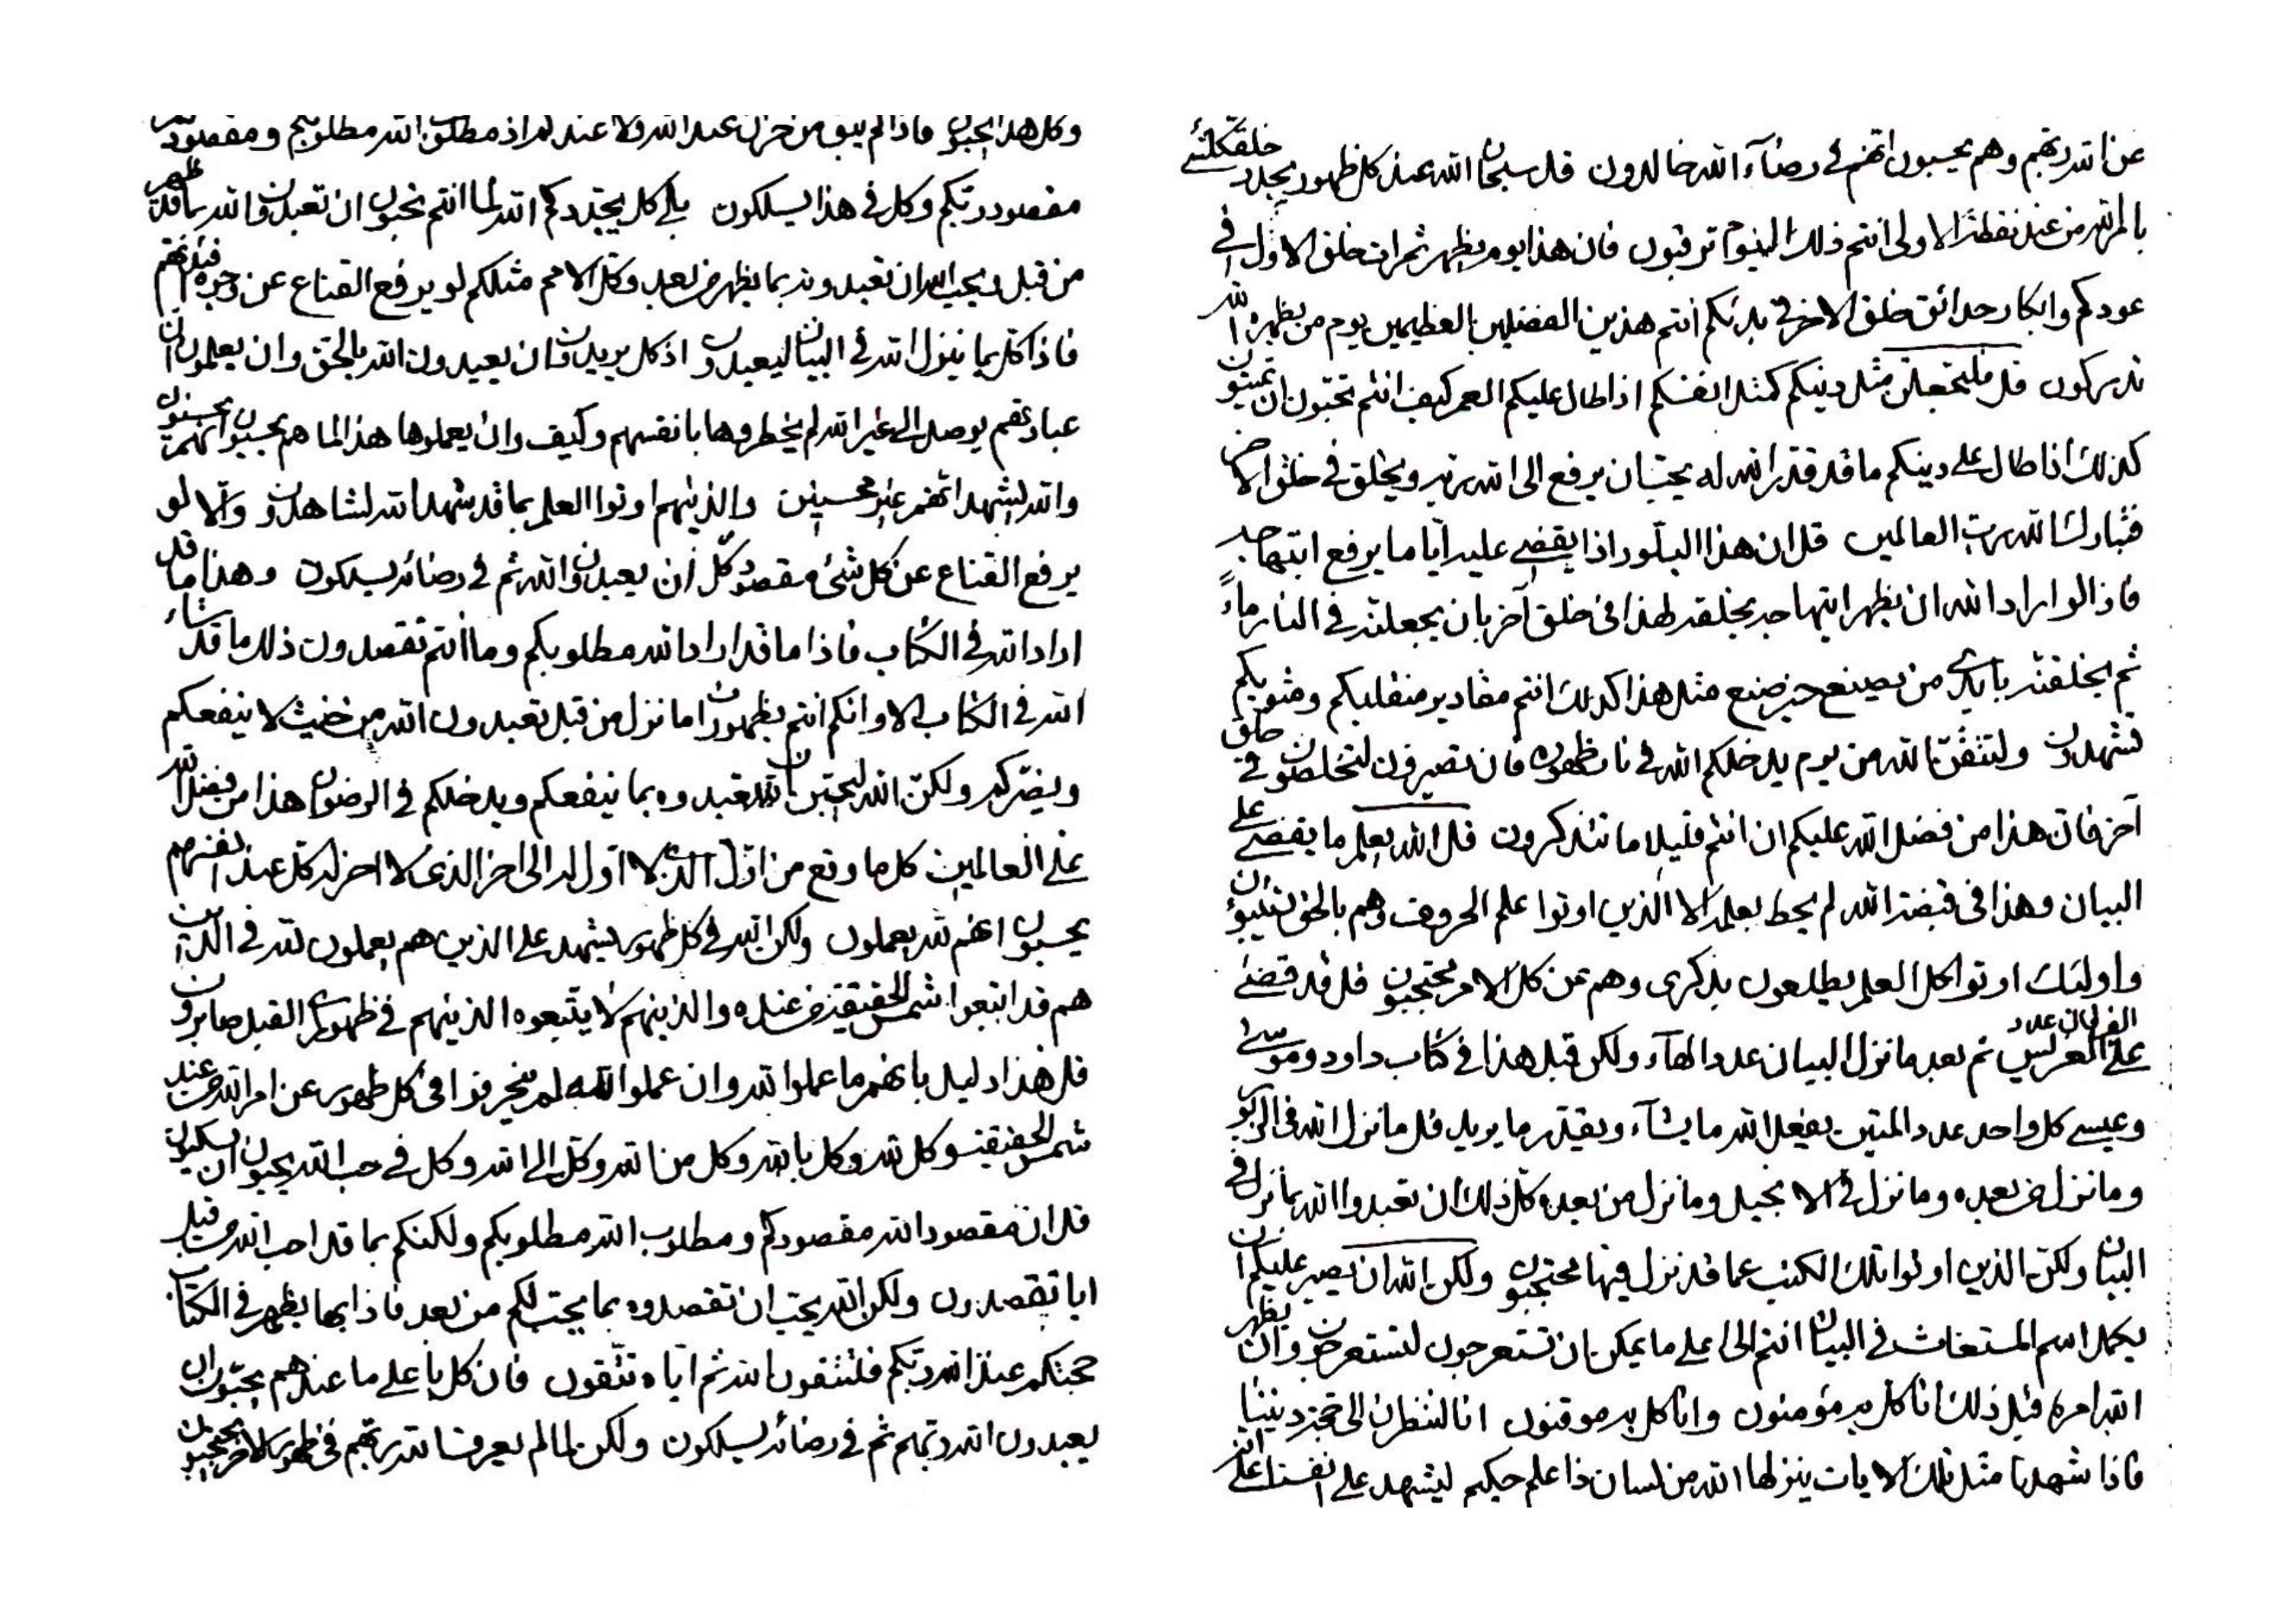 عن الله ربهم وهم يحسبون انهم في رضآء الله خالدون قل سبحان الله عند كل ظهور يجدد خلق كلشئ
بامر الله من عند نقطة الاولى انتم ذلك اليوم ترقبون فان هذا يوم يظهر ثمرات خلق الاول في
عودكم وابكار حدائق خلق الاخر في بدئكم انتم هذين الفضلين العظيمين يوم من يظهره الله
تدركون قل فلتجعلن مثل دينكم كمثل انفسكم اذا طال عليكم العمر كيف انتم تحبون ان تميتون
كذلك اذا طال على دينكم ما قد قدر الله له يحب ان يرفع الى الله ربه ويخلق في خلق الاخر
فتبارك الله رب العالمين قل ان هذا البلور اذا يقضى عليه اياما يرفع ابتهاجه
فاذا لو اراد الله ان يظهر ابتهاجه يخلقه لهذا في خلق آخر بان يجعلنه في النار ماءً
ثم يخلقنه بايدي من يصنع خير صنع مثل هذا كذلك انتم مقادير منقلبكم ومثويكم
تشهدون ولتتقن الله من يوم يدخلكم الله في نار ظهوره فان تصبرون لتخلصون في خلق
آخر فان هذا من فضل الله عليكم ان انتم قليلا ما تتذكرون قل الله يعلم ما يقضى على
البيان وهذا في قبضة الله لم يحط بعلمه الا الذين اوتوا علم الحروف وهم بالحق لينبئون
واولئك اوتوا كل العلم يطلعون بذكرى وهم عن كل الامر محتجبون قل قد قضى
على الفرقان عدد الغرس ثم بعد ما نزل البيان عدد الهآء ولكن قبل هذا في كتاب داود وموسى
وعيسى كل واحد عدد المتين يفعل الله ما يشآء ويقدر ما يريد قل ما نزل الله في الزبور
وما نزل من بعده وما نزل في الانجيل وما نزل من بعده كل ذلك ان تعبدوا الله بما نزل في
البيان ولكن الذين اوتوا تلك الكتب عما قد نزل فيها محتجبون ولكن الله ان يصبر عليكم ان
يكمل اسم المستغاث في البيان انتم الى اعلى ما يمكن ان تستعرجون لتستعرجون وان يظهر
الله امره قبل ذلك انا كل به مؤمنون وانا كل به موقنون انا لننظرن الى تجدد ديننا
فاذا شهدنا مثل تلك الايات ينزلها الله من لسان ذا علم حكيم ليشهد على انفسنا على انه
وكل هذا يحبون فاذا لم يبق من حزن عند الله ولا عند لم اذ مطلوب الله مطلوبكم ومقصودكم
مقصود ربكم وكل في هذا يسلكون بلى كل يجددكم الله لما انتم تحبون ان تعبدون الله بما قد ظهر
من قبل ويحب الله ان تعبدونه بما يظهر من بعد وكل الامم مثلكم لو يرفع القناع عن وجوه افئدتهم
فاذا كل بما ينزل الله في البيان ليعبدون اذ كل يريدون ان يعبدون الله بالحق وان يعلمون ان
عبادتهم يوصل الى غير الله لم يخطروها بانفسهم وكيف وان يعملوها هذا لما هم يحسبون انهم محسنون
والله ليشهد انهم غير محسنين والذينهم اوتوا العلم بما قد شهد الله لشاهدون والا لو
يرفع القناع عن كل شئ مقصود كل ان يعبدون الله ثم في رضائه يسلكون وهذا ما قد
اراد الله في الكتاب فاذا ما قد اراد الله مطلوبكم وما انتم تقصدون ذلك ما قد شاء
الله في الكتاب الا وانكم انتم بظهور ما نزل من قبل تعبدون الله من حيث لا ينفعكم
ويضركم ولكن الله ليحبن ان تعبدوه بما ينفعكم ويدخلكم في الرضوان هذا من فضل الله
على العالمين كل ما وقع من اول الذي لا اول له الى اخر الذي لا اخر له كل عند انفسهم
يحسبون انهم لله يعملون ولكن الله في كل ظهور يشهد على الذين هم يعملون لله في الذين
هم قد اتبعوا شمس الحقيقة من عنده والذينهم لا يتبعوه الذينهم في ظهور القبل صابرون
قل هذا دليل بانهم ما عملوا لله وان عملوا لله لم ينحرفوا في كل ظهور عن امر الله من عند
شمس الحقيقة وكل لله وكل بالله وكل من الله وكل الى الله وكل في حب الله يحبون ان يسكنون
قل ان مقصود الله مقصودكم ومطلوب الله مطلوبكم ولكنكم بما قد احب الله من قبل
اياه تقصدون ولكن الله يحب ان تقصدوه بما يحب لكم من بعد فاذا بها يظهر في الكتاب
حجتكم عند الله ربكم فلتتقون الله ثم اياه تتقون فان كلا على ما عندهم يحبون ان
يعبدون الله ربهم ثم في رضائه يسلكون ولكن لما لم يعرف الله ربهم في ظهور الاخر يحتجبون